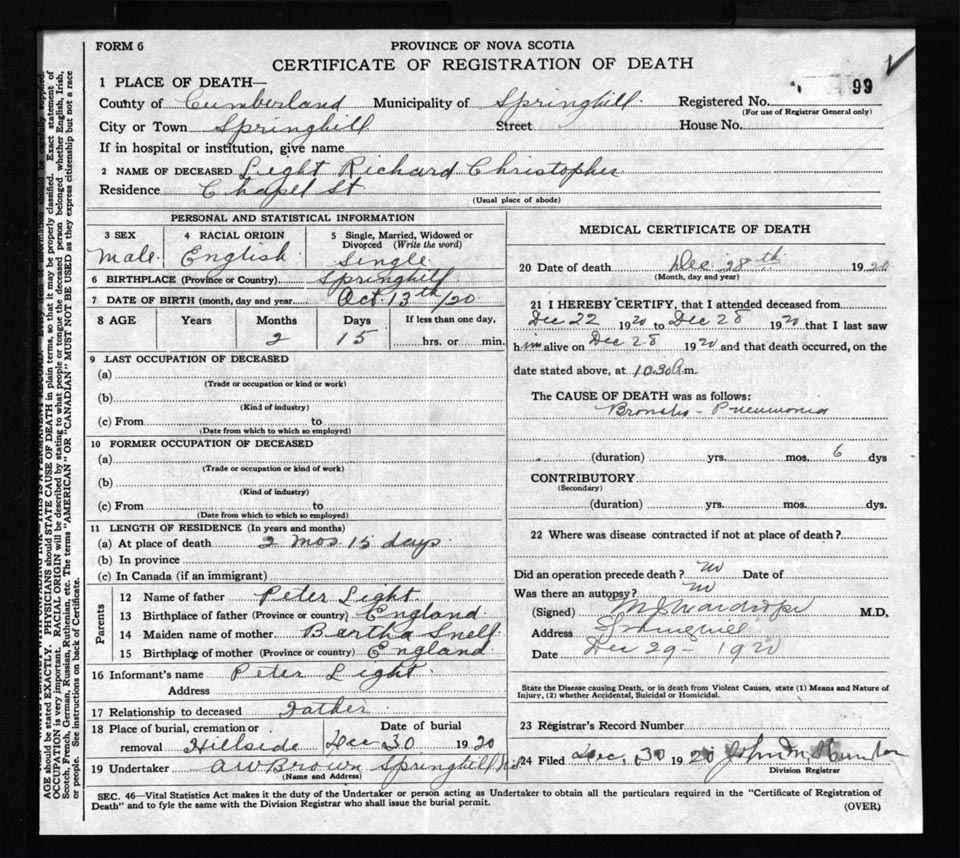 FORM 6
PROVINCE OF NOVA SCOTIA
CERTIFICATE OF REGISTRATION OF DEATH
99
1 PLACE OF DEATH—
County of Cumberland Municipality of Springhill Registered No.
(For use of Registrar General only)
City or Town Springhill Street House No.
If in hospital or institution, give name
2 NAME OF DECEASED Light Richard Christopher
Residence Chapel St
(Usual place of abode)
PERSONAL AND STATISTICAL INFORMATION
3 SEX 4 RACIAL ORIGIN 5 Single, Married, Widowed or Divorced (Write the word)
Male English Single
6 BIRTHPLACE (Province or Country) Springhill
7 DATE OF BIRTH (month, day and year) Oct 13th/20
8 AGE Years Months Days If less than one day,
2 15 hrs. or min.
9 LAST OCCUPATION OF DECEASED
(a)
(Trade or occupation or kind or work)
(b)
(Kind of industry)
(c) From to
(Date from which to which so employed)
10 FORMER OCCUPATION OF DECEASED
(a)
(Trade or occupation or kind of work)
(b)
(Kind of industry)
(c) From to
(Date from which to which so employed)
11 LENGTH OF RESIDENCE (In years and months)
(a) At place of death 2 mos 15 days
(b) In province
(c) In Canada (if an immigrant)
Parents
12 Name of father Peter Light
13 Birthplace of father (Province or country) England
14 Maiden name of mother Bertha Snell
15 Birthplace of mother (Province or country) England
16 Informant's name Peter Light
Address
17 Relationship to deceased Father
18 Place of burial, cremation or removal Hillside Date of burial Dec 30 1920
19 Undertaker A W Brown Springhill N.S.
(Name and Address)
MEDICAL CERTIFICATE OF DEATH
20 Date of death Dec 28th 1920
(Month, day and year)
21 I HEREBY CERTIFY, that I attended deceased from
Dec 22 1920 to Dec 28 1920 that I last saw
him alive on Dec 28 1920 and that death occurred, on the
date stated above, at 10.30 A.m.
The CAUSE OF DEATH was as follows:
Broncho-Pneumonia
(duration) yrs. mos. 6 dys
CONTRIBUTORY
(Secondary)
(duration) yrs. mos. dys.
22 Where was disease contracted if not at place of death?
Did an operation precede death? no Date of
Was there an autopsy? no
(Signed) M.D.
Address Springhill
Date Dec 29 - 1920
State the Disease causing Death, or in death from Violent Causes, state (1) Means and Nature of
Injury, (2) whether Accidental, Suicidal or Homicidal.
23 Registrar's Record Number
24 Filed Dec. 30 1920 John M.
Division Registrar
SEC. 46—Vital Statistics Act makes it the duty of the Undertaker or person acting as Undertaker to obtain all the particulars required in the "Certificate of Registration of
Death" and to fyle the same with the Division Registrar who shall issue the burial permit.
(OVER)
AGE should be stated EXACTLY. PHYSICIANS should STATE CAUSE OF DEATH in plain terms, so that it may be properly classified. Exact statement of
OCCUPATION is very important. RACIAL ORIGIN will be described by stating to what people or tongue the deceased person belonged whether English, Irish,
Scotch, French, German, Russian, Ruthenian, etc. The terms "AMERICAN" OR "CANADIAN" MUST NOT BE USED as they express citizenship but not a race
or people. See instructions on back of Certificate.